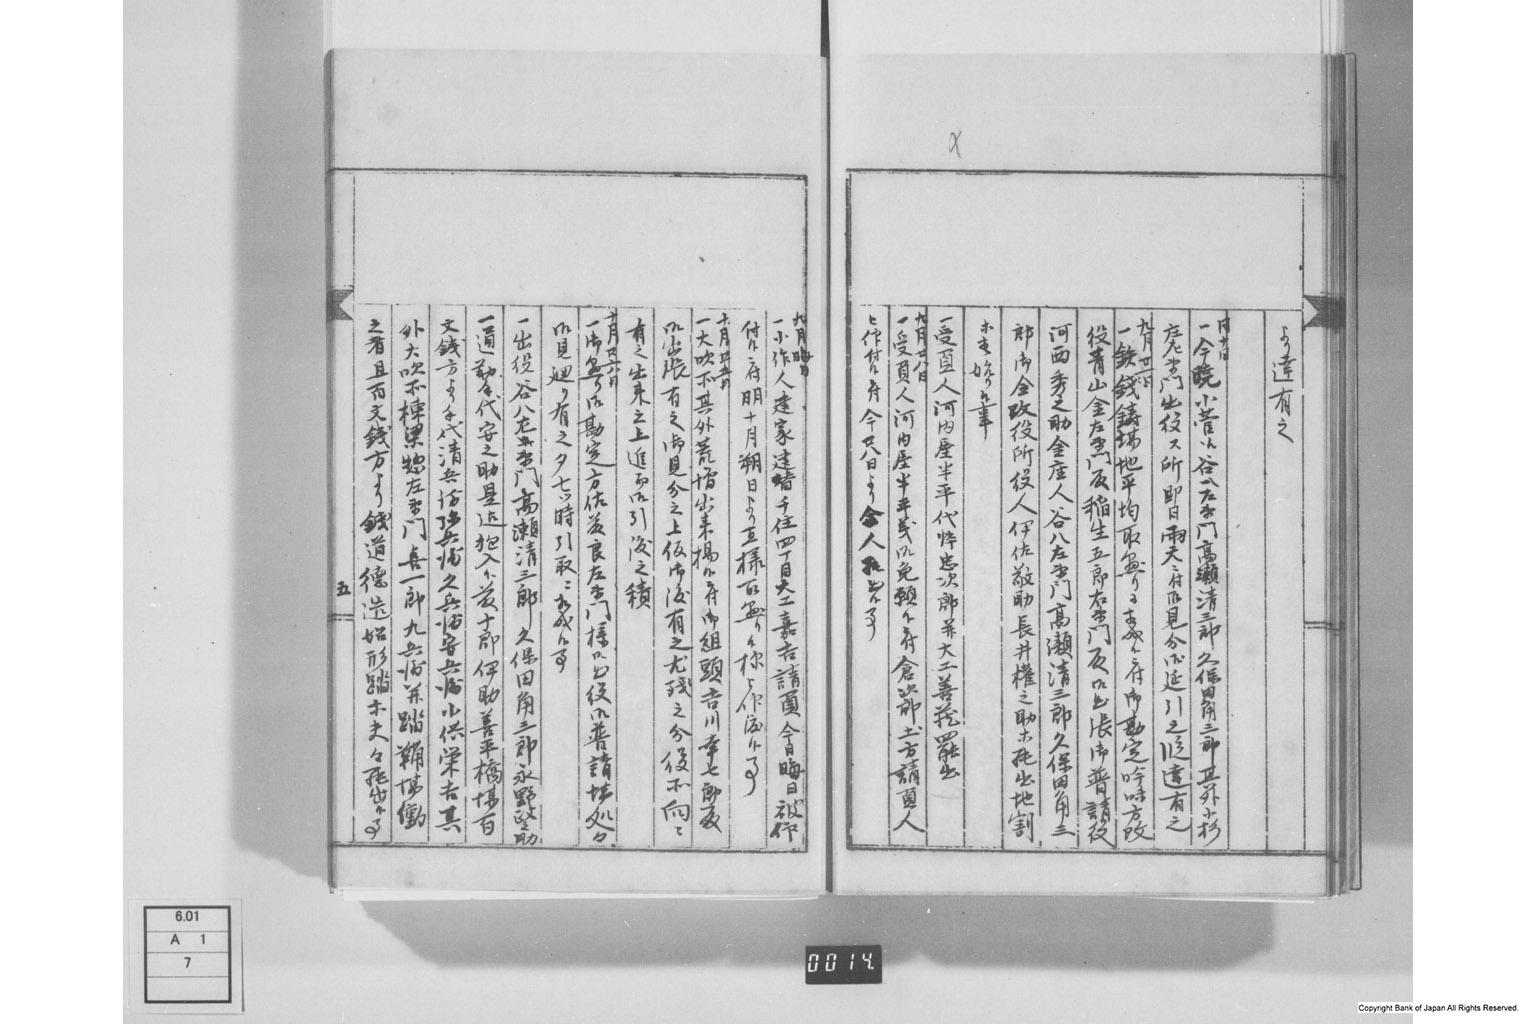 より達有之
同十日
一今暁小菅ゟ谷八左衛門高瀬清三郎久保田角三郎其外小杉
庄左衛門出役之所即日雨天ニ付御見分御延引之順達有之
九月廿一日
一鉄銭鋳場地平均取掛り候付御勘定吟味方改
役青山金左衛門殿稲生五郎右衛門殿御出張御普請役
河西秀之助金座人谷八左衛門高瀬清三郎久保田角三
郎御金改役所役人伊佐敬助長井権之助等罷出地割
等有始り候事
一受負人河内屋半平代忰忠次郎并大工善蔵罷出
九月廿八日
一受負人河内屋半平義御免願候付倉次郎土方請負人
被仰付候付今廿八日より人罷出候事
九月晦日
一小作人建家建増千住四丁目大工嘉吉請負今日晦日被仰
付候付明十月朔日より立様取掛り候様被仰渡候事
十月廿五日
一大吹所其外荒増出来揚候付御組頭吉川幸七郎殿
御出張有之御見分之上仮御渡有之尤残之分役所向々
有之出来之上追而御引渡之積
十月廿六日
一御掛り御勘定方佐藤良左衛門様御出役御普請場処々
御見廻り有之夕七ツ時引取ニ相成候事
一出役谷八左衛門高瀬清三郎久保田角三郎永野堅助
一通勤手代安之助是迄抱入候藤十郎伊助善平橋場百
文銭方より手代清兵衛弥兵衛久兵衛安兵衛小供栄吉其
外大吹所棟梁惣左衛門喜一郎九兵衛并踏鞴場働
之者且而文銭方より銭道徳造始形踏等夫々罷出候事
五
6.01
A 1
7
0014
Copyright Bank of Japan All Rights Reserved.